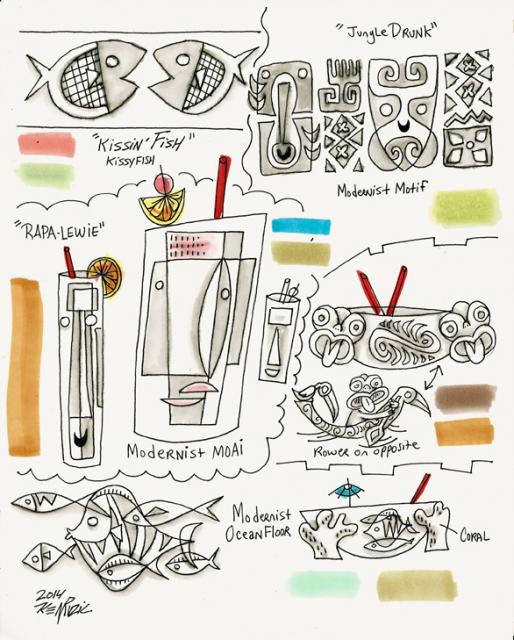 "Jungle DRUNK"
"Kissin' Fish"
KissyFISH
Modernist Motif
"RAPA-LEWIE"
Modernist MOAi
Rower on opposite
Modernist
Ocean Floor
CORAL
2014